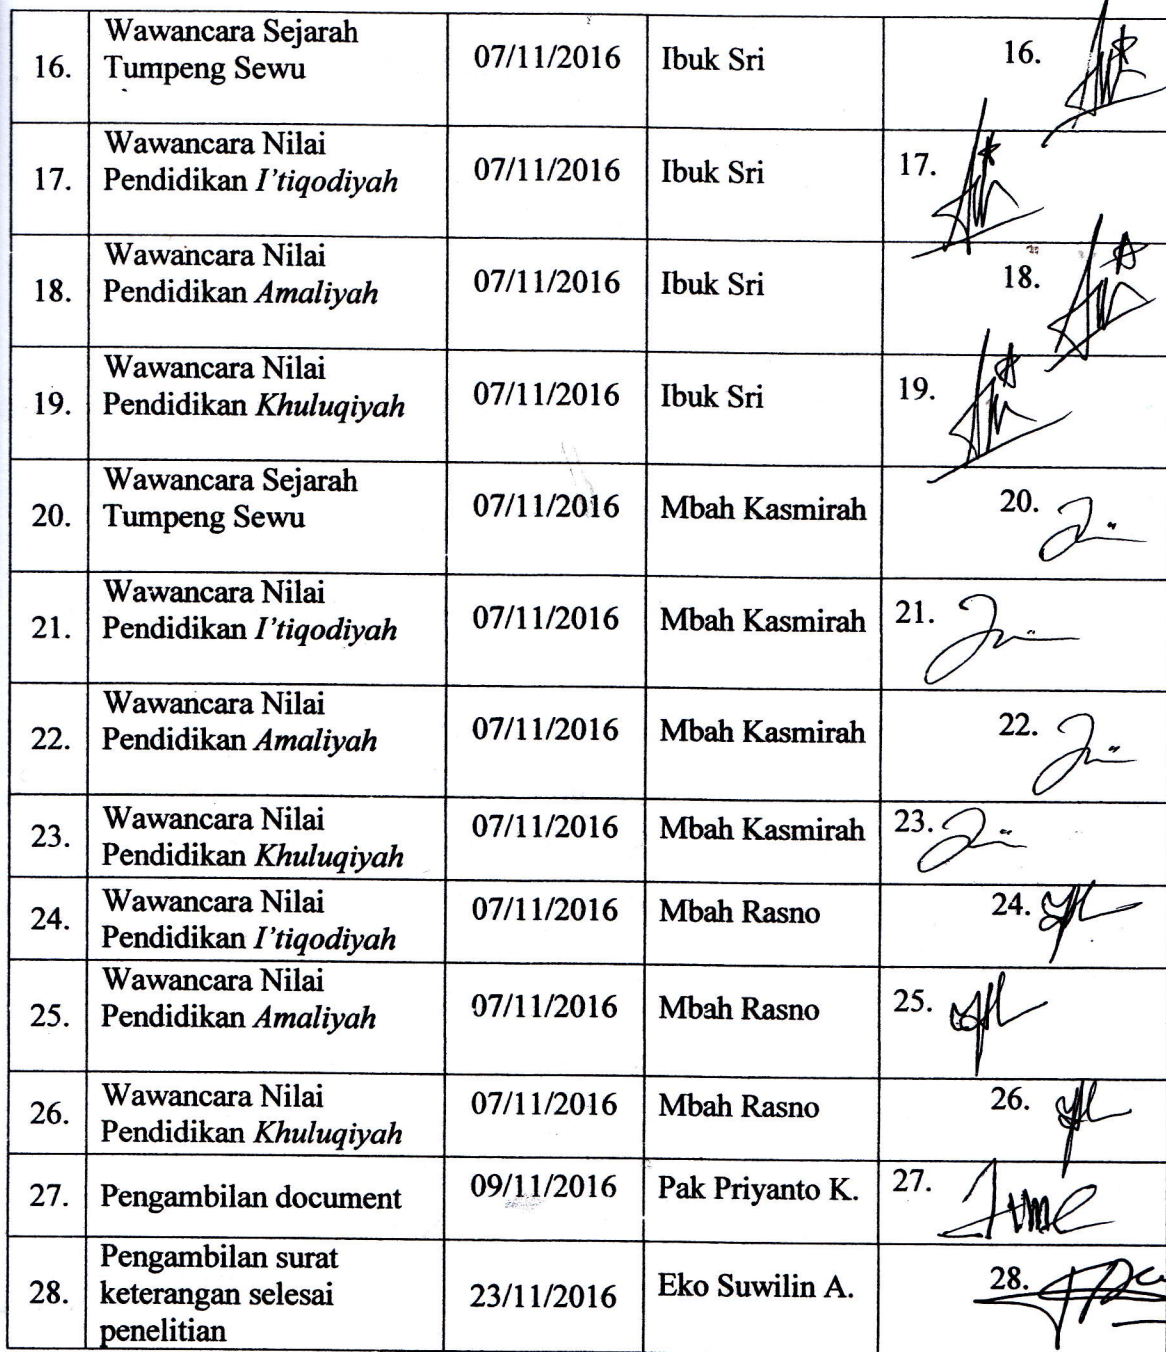 16.
Wawancara Sejarah
Tumpeng Sewu
07/11/2016
Ibuk Sri
16.
17.
Wawancara Nilai
Pendidikan I'tiqodiyah
07/11/2016
Ibuk Sri
17.
18.
Wawancara Nilai
Pendidikan Amaliyah
07/11/2016
Ibuk Sri
18.
19.
Wawancara Nilai
Pendidikan Khuluqiyah
07/11/2016
Ibuk Sri
19.
20.
Wawancara Sejarah
Tumpeng Sewu
07/11/2016
Mbah Kasmirah
20.
21.
Wawancara Nilai
Pendidikan I'tiqodiyah
07/11/2016
Mbah Kasmirah
21.
22.
Wawancara Nilai
Pendidikan Amaliyah
07/11/2016
Mbah Kasmirah
22.
23.
Wawancara Nilai
Pendidikan Khuluqiyah
07/11/2016
Mbah Kasmirah
23.
24.
Wawancara Nilai
Pendidikan I'tiqodiyah
07/11/2016
Mbah Rasno
24.
25.
Wawancara Nilai
Pendidikan Amaliyah
07/11/2016
Mbah Rasno
25.
26.
Wawancara Nilai
Pendidikan Khuluqiyah
07/11/2016
Mbah Rasno
26.
27.
Pengambilan document
09/11/2016
Pak Priyanto K.
27.
28.
Pengambilan surat
keterangan selesai
penelitian
23/11/2016
Eko Suwilin A.
28.